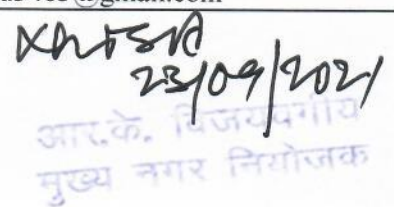 @gmail.com
23/09/2021
आर.के. विजयवर्गीय
मुख्य नगर नियोजक